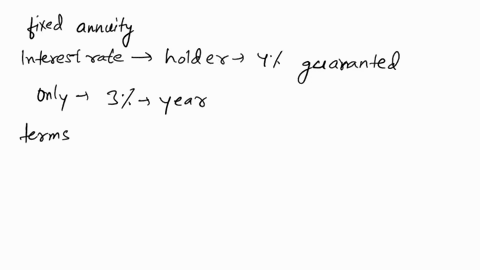 fixed annuity
Interest rate → holder → 4% guaranted
only → 3% → year
terms